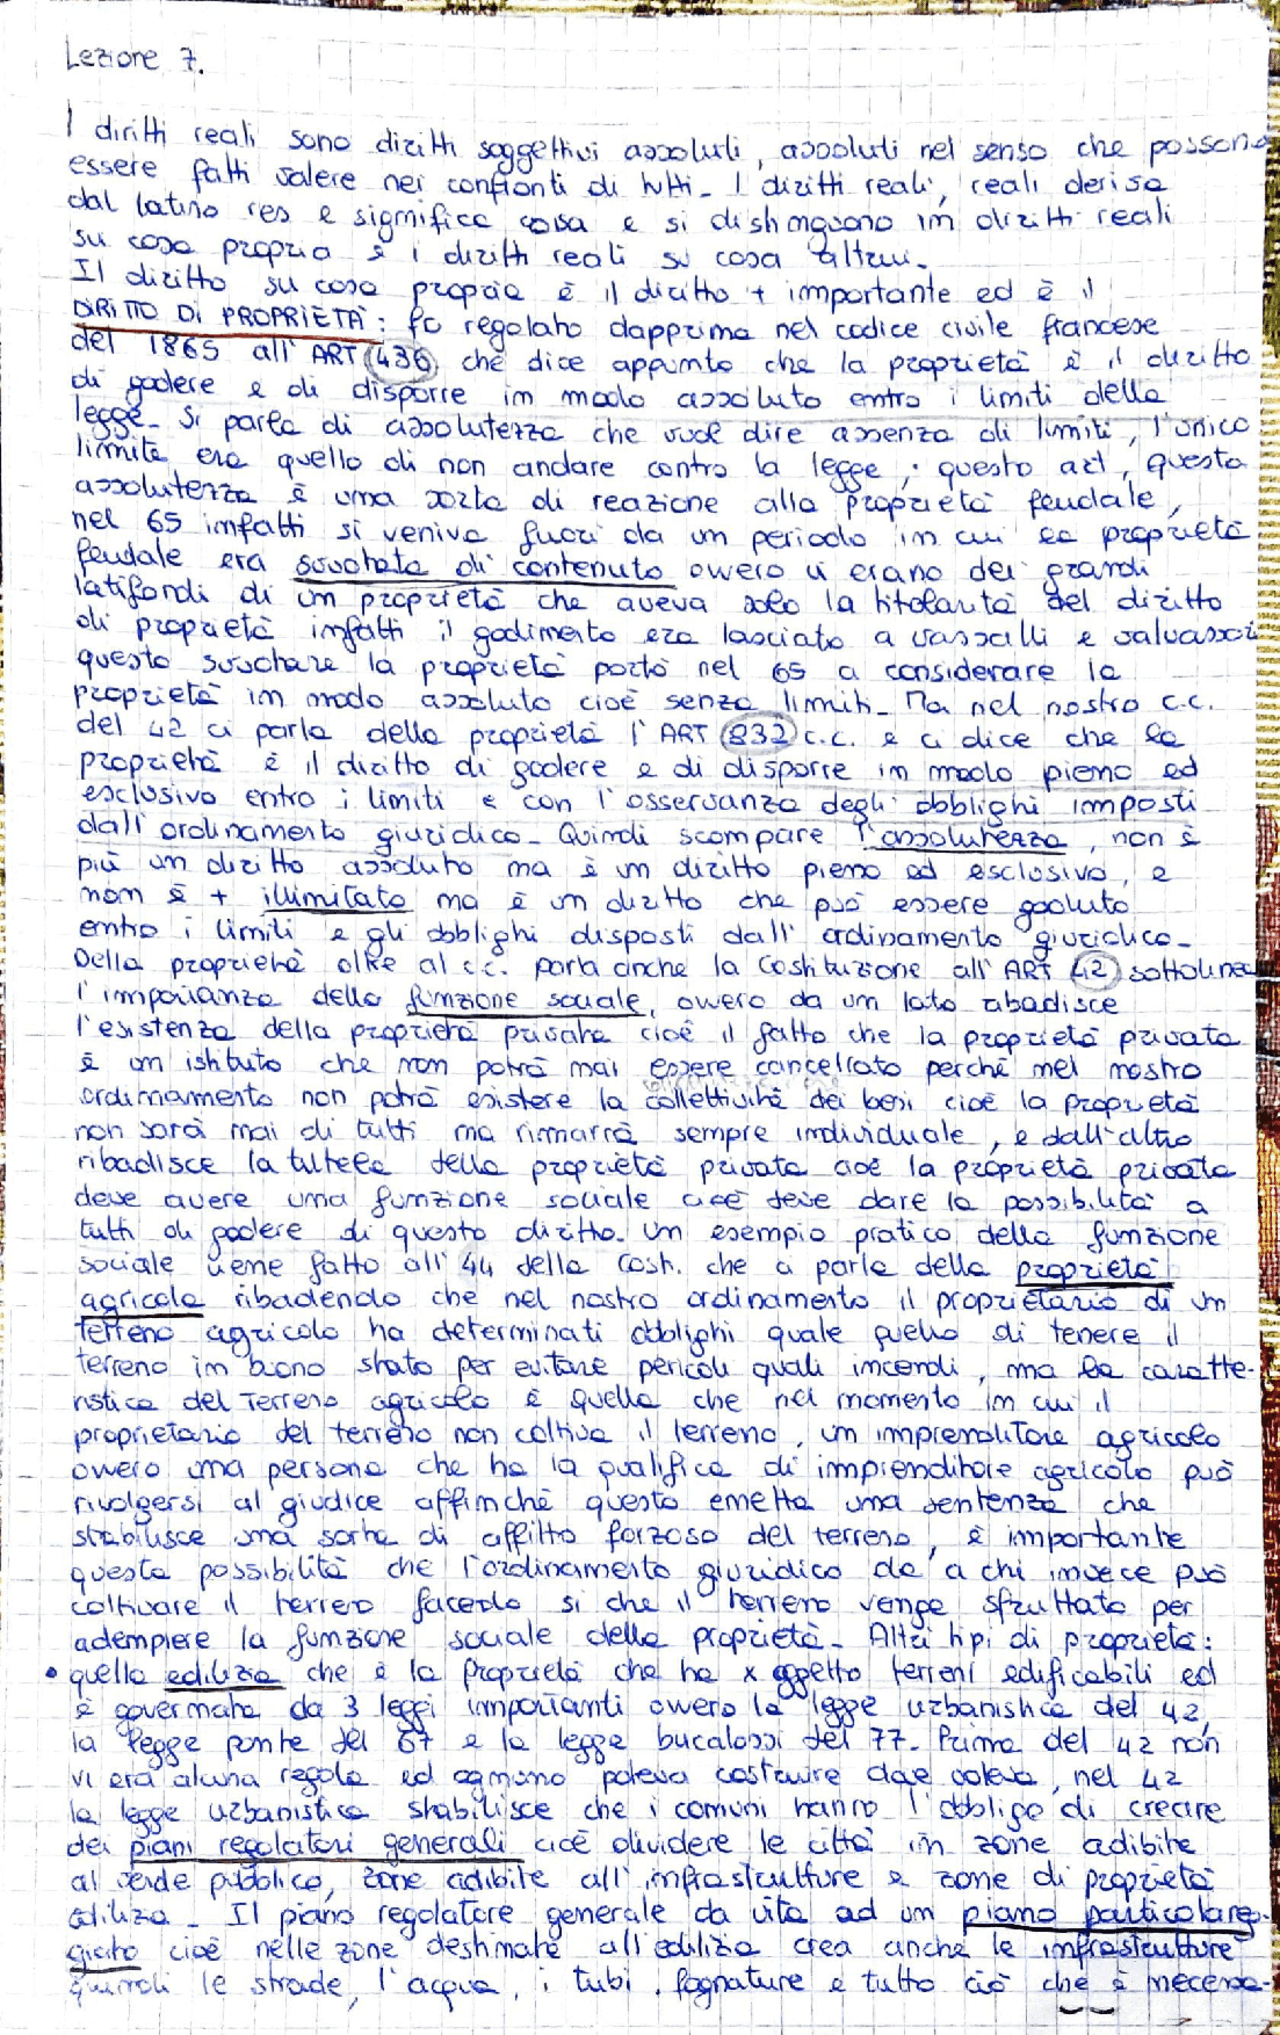 Lezione 7.
I diritti reali sono diritti soggettivi assoluti, assoluti nel senso che possono
essere fatti valere nei confronti di tutti. I diritti reali, reali deriva
dal latino res e significa cosa e si distinguono in diritti reali
su cosa propria e i diritti reali su cosa altrui.
Il diritto su cosa propria è il diritto + importante ed è il
DIRITTO DI PROPRIETÀ: fo regolato dapprima nel codice civile francese
del 1865 all'ART 436 che dice appunto che la proprietà è il diritto
di godere e di disporre in modo assoluto entro i limiti della
legge. Si parla di assolutezza che vuol dire assenza di limiti, l'unico
limite era quello di non andare contro la legge; questo art, questa
assolutezza è una sorta di reazione alla proprietà feudale,
nel 65 infatti si veniva fuori da un periodo in cui la proprietà
feudale era svuotata di contenuto ovvero vi erano dei grandi
latifondi di un proprietà che aveva solo la titolarità del diritto
di proprietà infatti il godimento era lasciato a vassalli e valvassori
questo svuotare la proprietà portò nel 65 a considerare la
proprietà in modo assoluto cioè senza limiti. Ma nel nostro c.c.
del 42 ci parla della proprietà l'ART 832 c.c. e ci dice che la
proprietà è il diritto di godere e di disporre in modo pieno ed
esclusivo entro i limiti e con l'osservanza degli obblighi imposti
dall'ordinamento giuridico. Quindi scompare l'assolutezza, non è
più un diritto assoluto ma è un diritto pieno ed esclusivo, e
non è + illimitato ma è un diritto che può essere goduto
entro i limiti e gli obblighi disposti dall'ordinamento giuridico.
Della proprietà oltre al c.c. parla anche la Costituzione all'ART 42 sottolinea
l'importanza della funzione sociale, ovvero da un lato ribadisce
l'esistenza della proprietà privata cioè il fatto che la proprietà privata
è un istituto che non potrà mai essere cancellato perché nel nostro
ordinamento non potrà esistere la collettività dei beni cioè la proprietà
non sarà mai di tutti ma rimarrà sempre individuale, e dall'altro
ribadisce la tutela della proprietà privata cioè la proprietà privata
deve avere una funzione sociale cioè deve dare la possibilità a
tutti di godere di questo diritto. Un esempio pratico della funzione
sociale viene fatto all'44 della Cost. che ci parla della proprietà
agricola ribadendo che nel nostro ordinamento il proprietario di un
terreno agricolo ha determinati obblighi quale quello di tenere il
terreno in buono stato per evitare pericoli quali incendi, ma la caratte-
ristica del terreno agricolo è quella che nel momento in cui il
proprietario del terreno non coltiva il terreno, un imprenditore agricolo
ovvero una persona che ha la qualifica di imprenditore agricolo può
rivolgersi al giudice affinché questo emetta una sentenza che
stabilisce una sorta di affitto forzoso del terreno, è importante
questa possibilità che l'ordinamento giuridico da' a chi invece può
coltivare il terreno facendo si che il terreno venga sfruttato per
adempiere la funzione sociale della proprietà. Altri tipi di proprietà:
• quella edilizia che è la proprietà che ha x oggetto terreni edificabili ed
è governata da 3 leggi importanti ovvero la legge urbanistica del 42,
la legge ponte del 67 e la legge bucalossi del 77. Prima del 42 non
vi era alcuna regola ed ognuno poteva costruire dove voleva, nel 42
la legge urbanistica stabilisce che i comuni hanno l'obbligo di creare
dei piani regolatori generali cioè dividere le città in zone adibite
al verde pubblico, zone adibite all'infrastrutture e zone di proprietà
edilizia. Il piano regolatore generale da vita ad un piano particolareg-
giato cioè nelle zone destinate all'edilizia crea anche le infrastrutture
quindi le strade, l'acqua, i tubi, fognature e tutto ciò che è necessa-